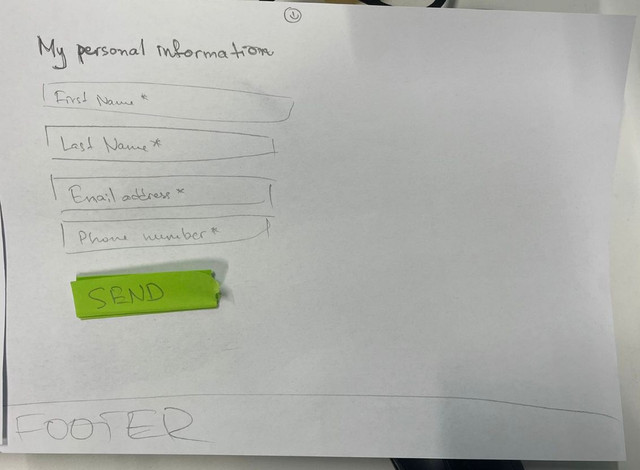 My personal information
First Name*
Last Name*
Email address*
Phone number*
SEND
FOOTER